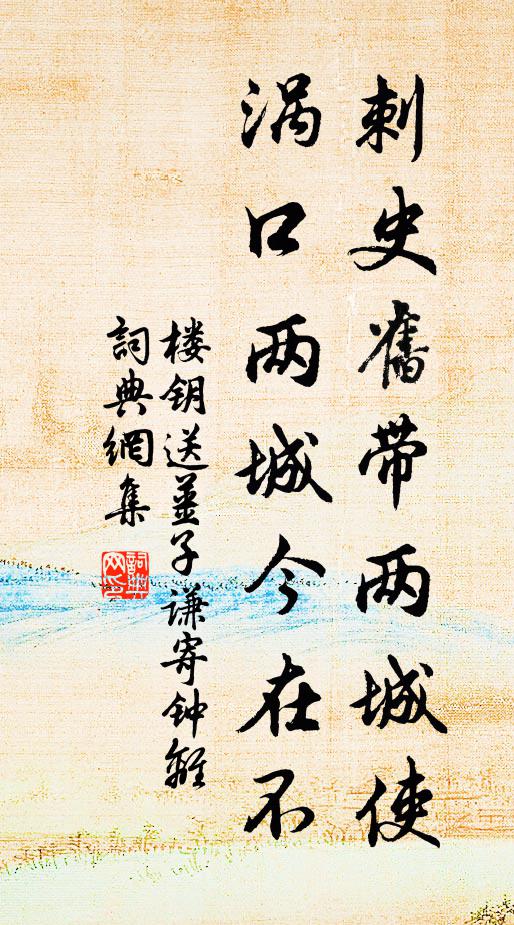 刺史舊带两城使
涡口两城今在不
楼钥送姜子谦寄钟離
詞典網集